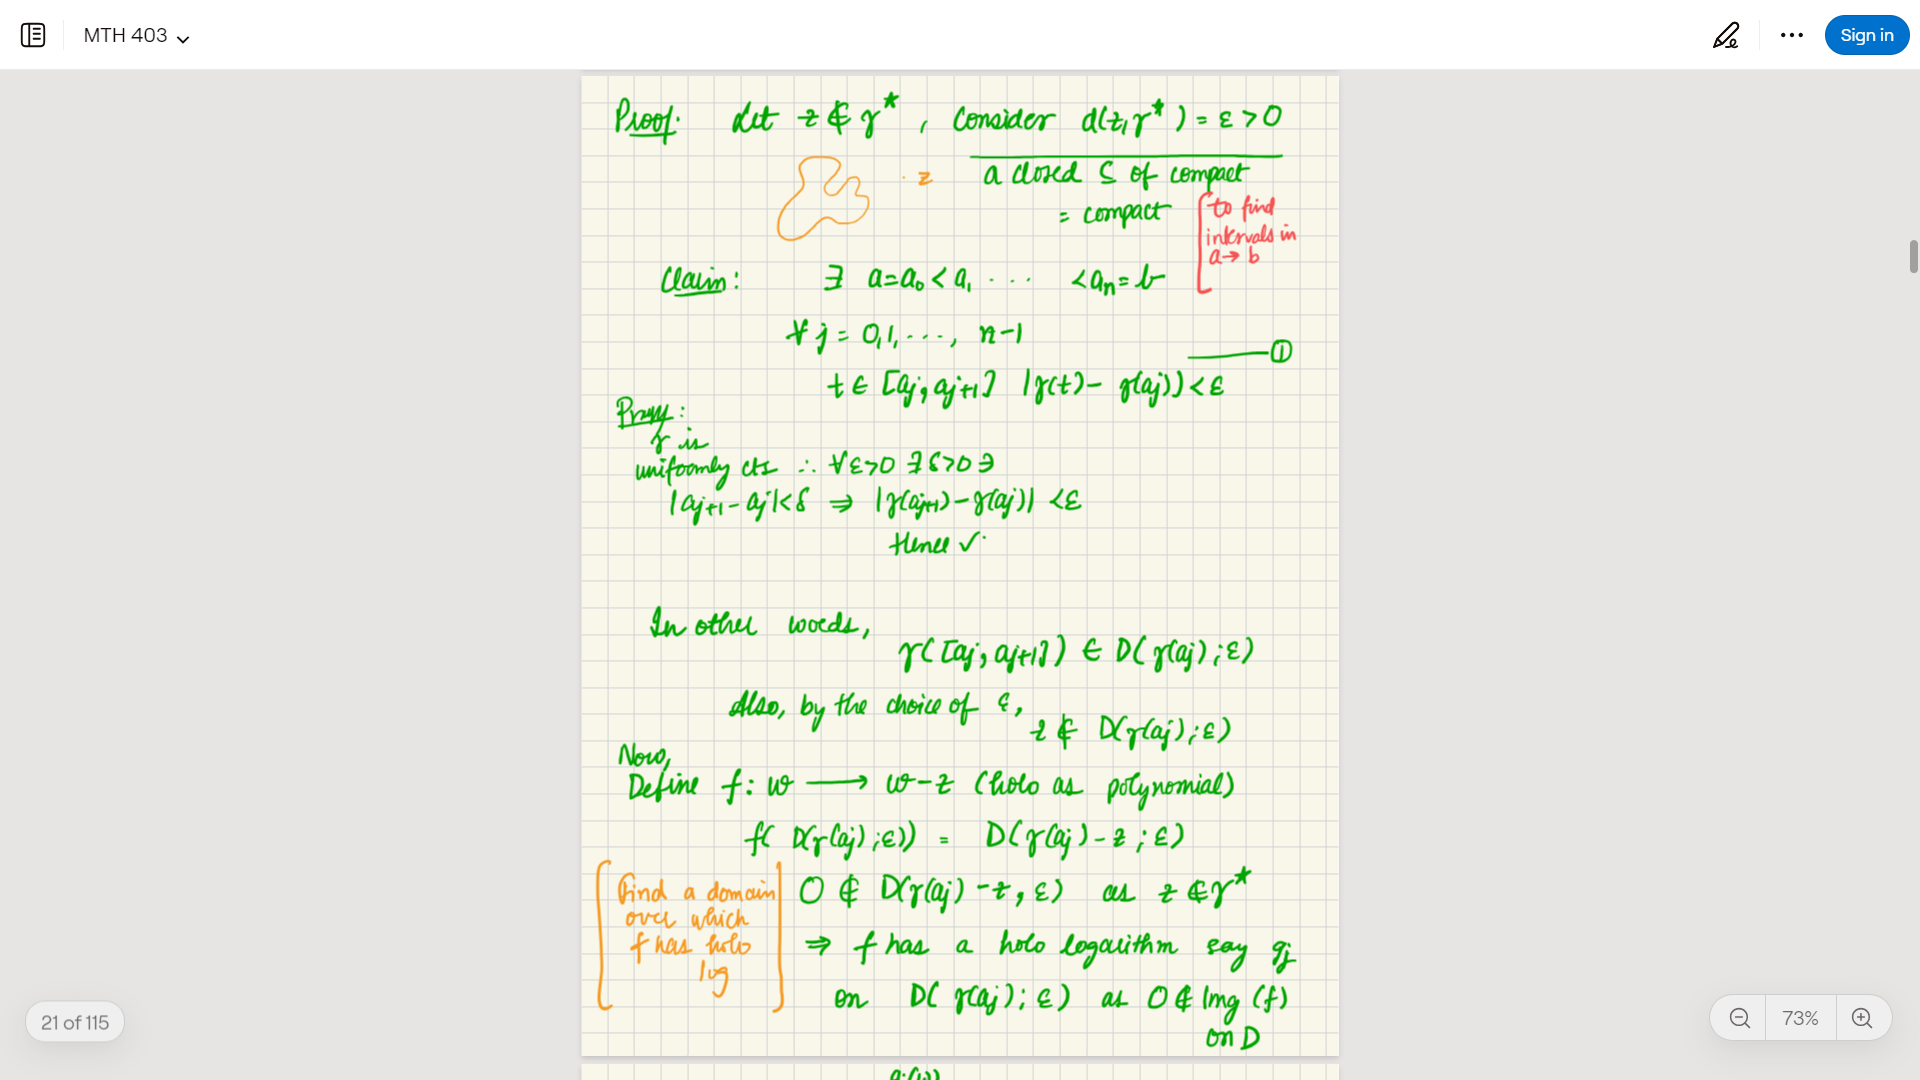 MTH 403
Sign in
Proof: Let z ∉ γ* , Consider d(z, γ*) = ε > 0
z
a closed ⊆ of compact
= compact
[to find
intervals in
a → b
Claim: ∃ a = a₀ < a₁ .... < aₙ = b
∀ j = 0, 1, ...., n-1
①
t ∈ [aj, aj+1] |γ(t) - γ(aj)| < ε
Proof:
γ is
uniformly cts ∴ ∀ε>0 ∃ δ>0 ∋
|aj+1 - aj| < δ ⇒ |γ(aj+1) - γ(aj)| < ε
Hence ✓
In other words,
γ([aj, aj+1]) ∈ D(γ(aj) ; ε)
Also, by the choice of ε,
z ∉ D(γ(aj) ; ε)
Now,
Define f: w ⟶ w - z (holo as polynomial)
f( D(γ(aj) ; ε)) = D(γ(aj) - z ; ε)
[Find a domain
over which
f has holo
log]
0 ∉ D(γ(aj) - z, ε) as z ∉ γ*
⇒ f has a holo logarithm say gj
on D( γ(aj) ; ε) as 0 ∉ Img (f)
on D
21 of 115
73%